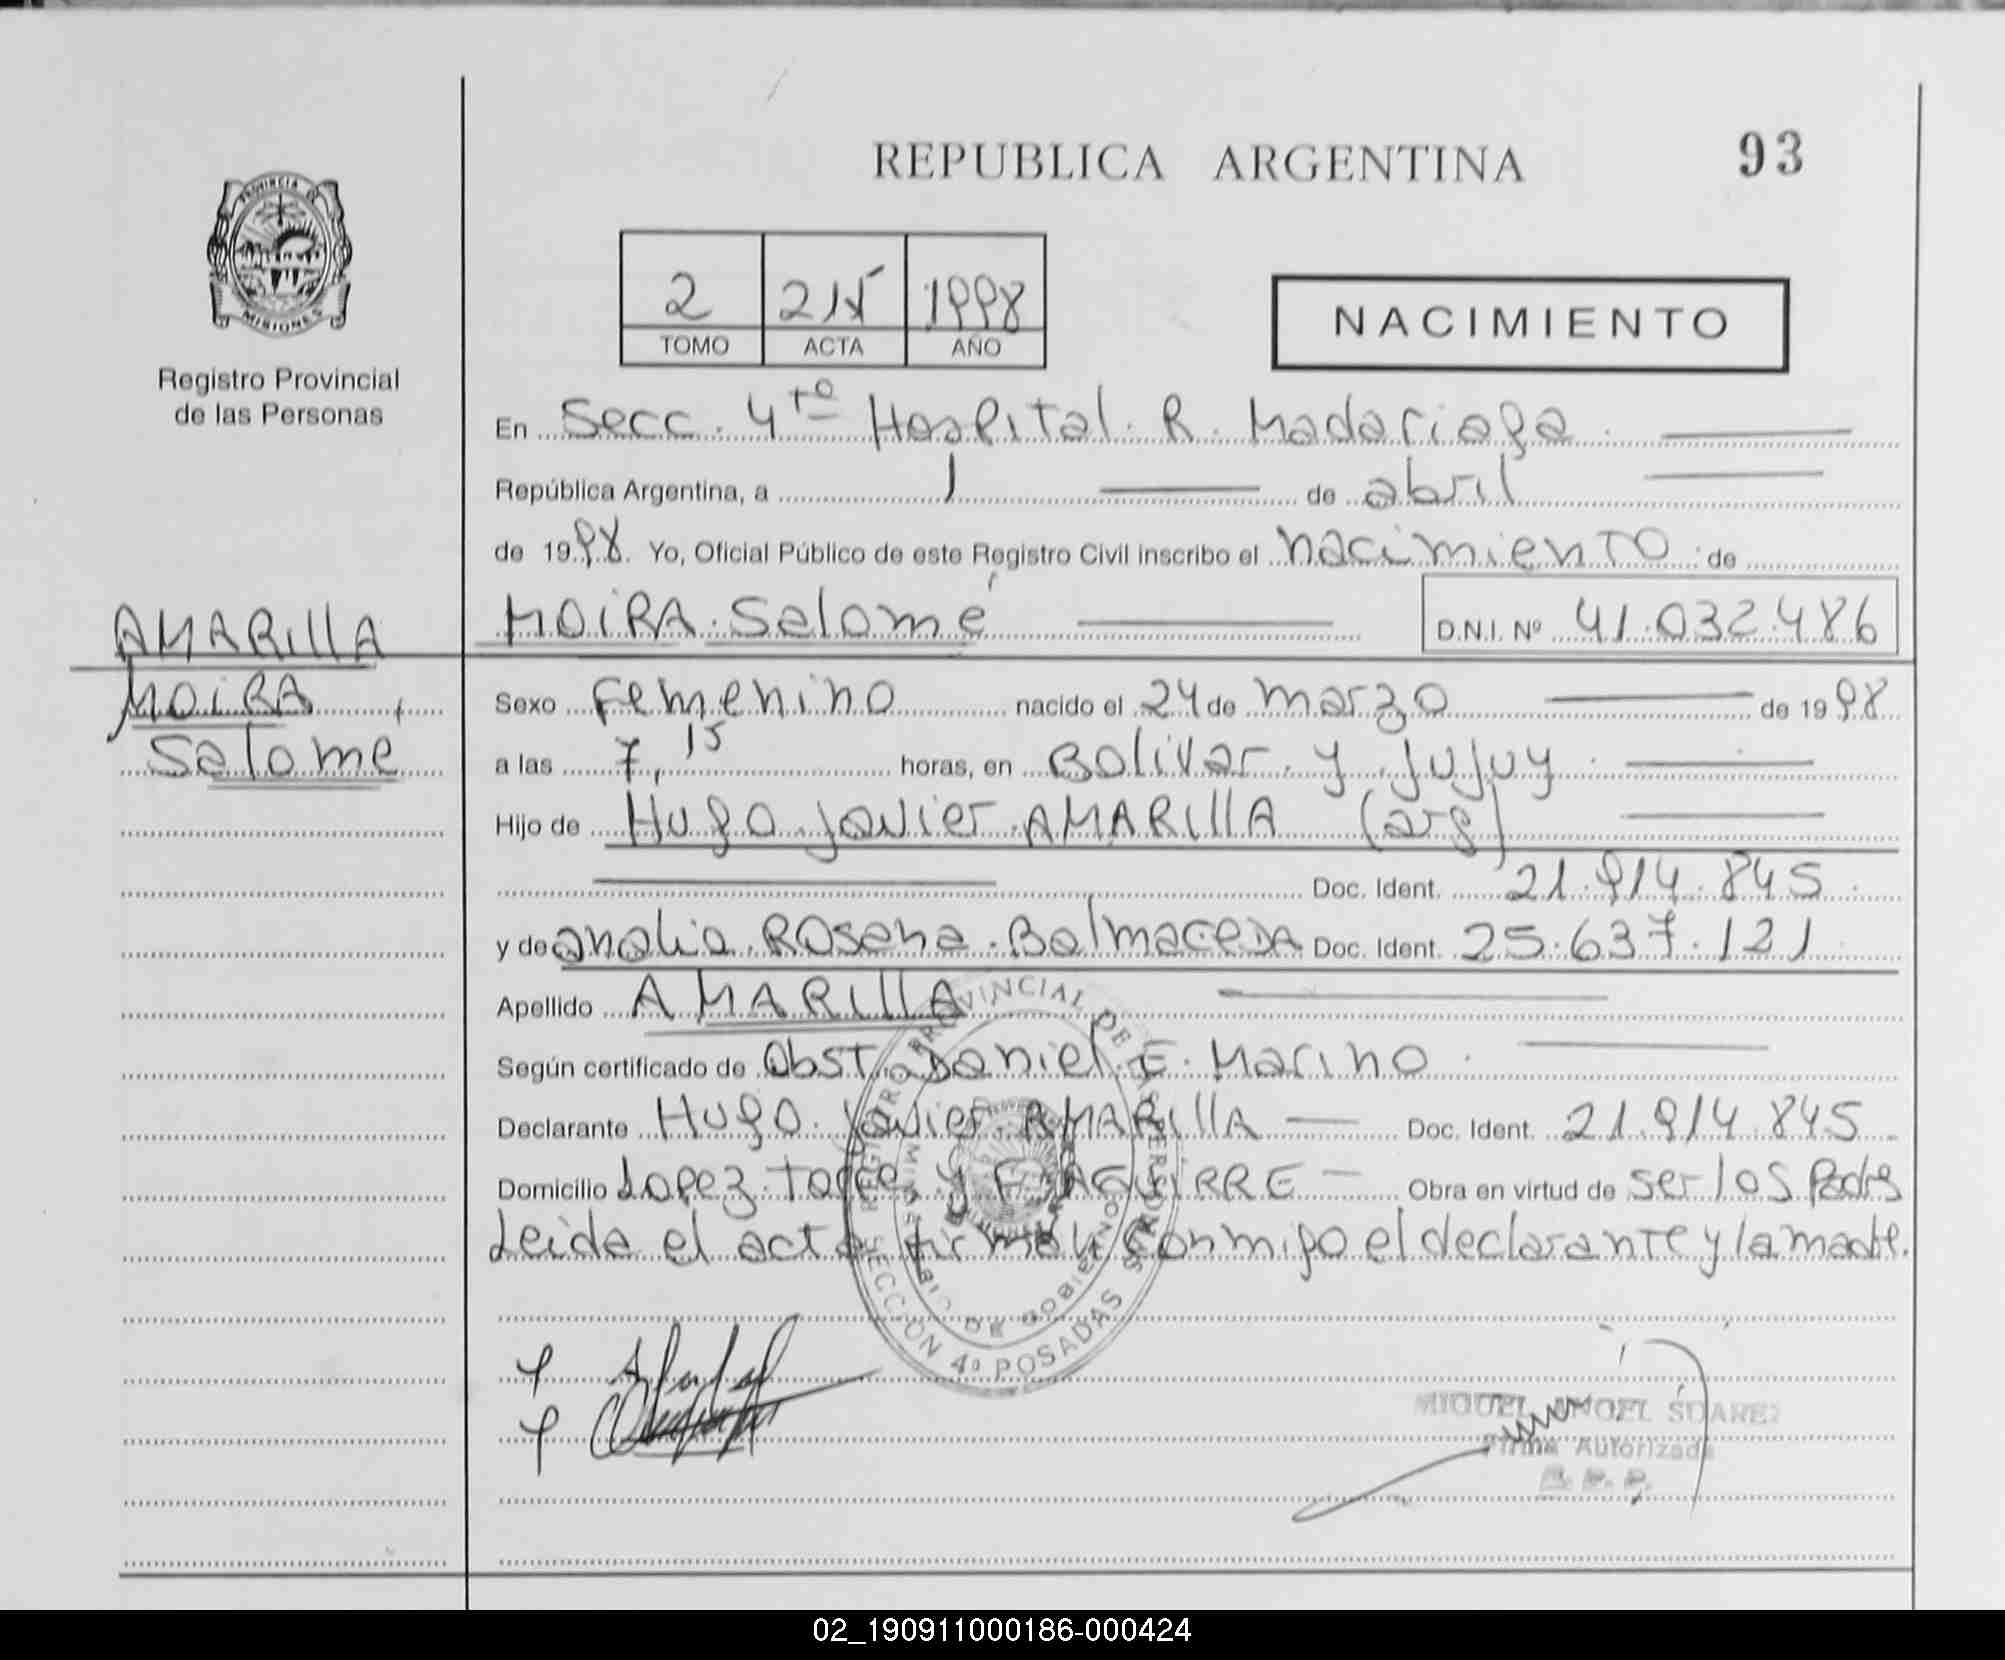 REPUBLICA ARGENTINA
93
PROVINCIA DE
MISIONES
Registro Provincial
de las Personas
2 215 1998
TOMO ACTA AÑO
NACIMIENTO
En Secc. 4to Hospital R. Madariaga
República Argentina, a 1 de abril
de 1998. Yo, Oficial Público de este Registro Civil inscribo el nacimiento de
MOIRA Salomé D.N.I. Nº 41.032.486
AMARILLA
MOIRA,
Salomé
Sexo Femenino nacido el 24 de marzo de 1998
a las 7,15 horas, en Bolivar y Jujuy
Hijo de Hugo Javier AMARILLA (arg)
Doc. Ident. 21.914.845
y de analia Rosana Balmaceda Doc. Ident. 25.637.121
Apellido AMARILLA
Según certificado de Obst. Daniel E. Marino
Declarante Hugo Javier AMARILLA Doc. Ident. 21.914.845
Domicilio Lopez Torres y F. AGUIRRE Obra en virtud de ser los Padres
Leida el acta firman conmigo el declarante y la madre.
REGISTRO PROVINCIAL DE LAS PERSONAS
MINISTERIO DE GOBIERNO
SECCION 4ª POSADAS
MIGUEL ANGEL SUAREZ
Firma Autorizada
R. P. P.
02_190911000186-000424